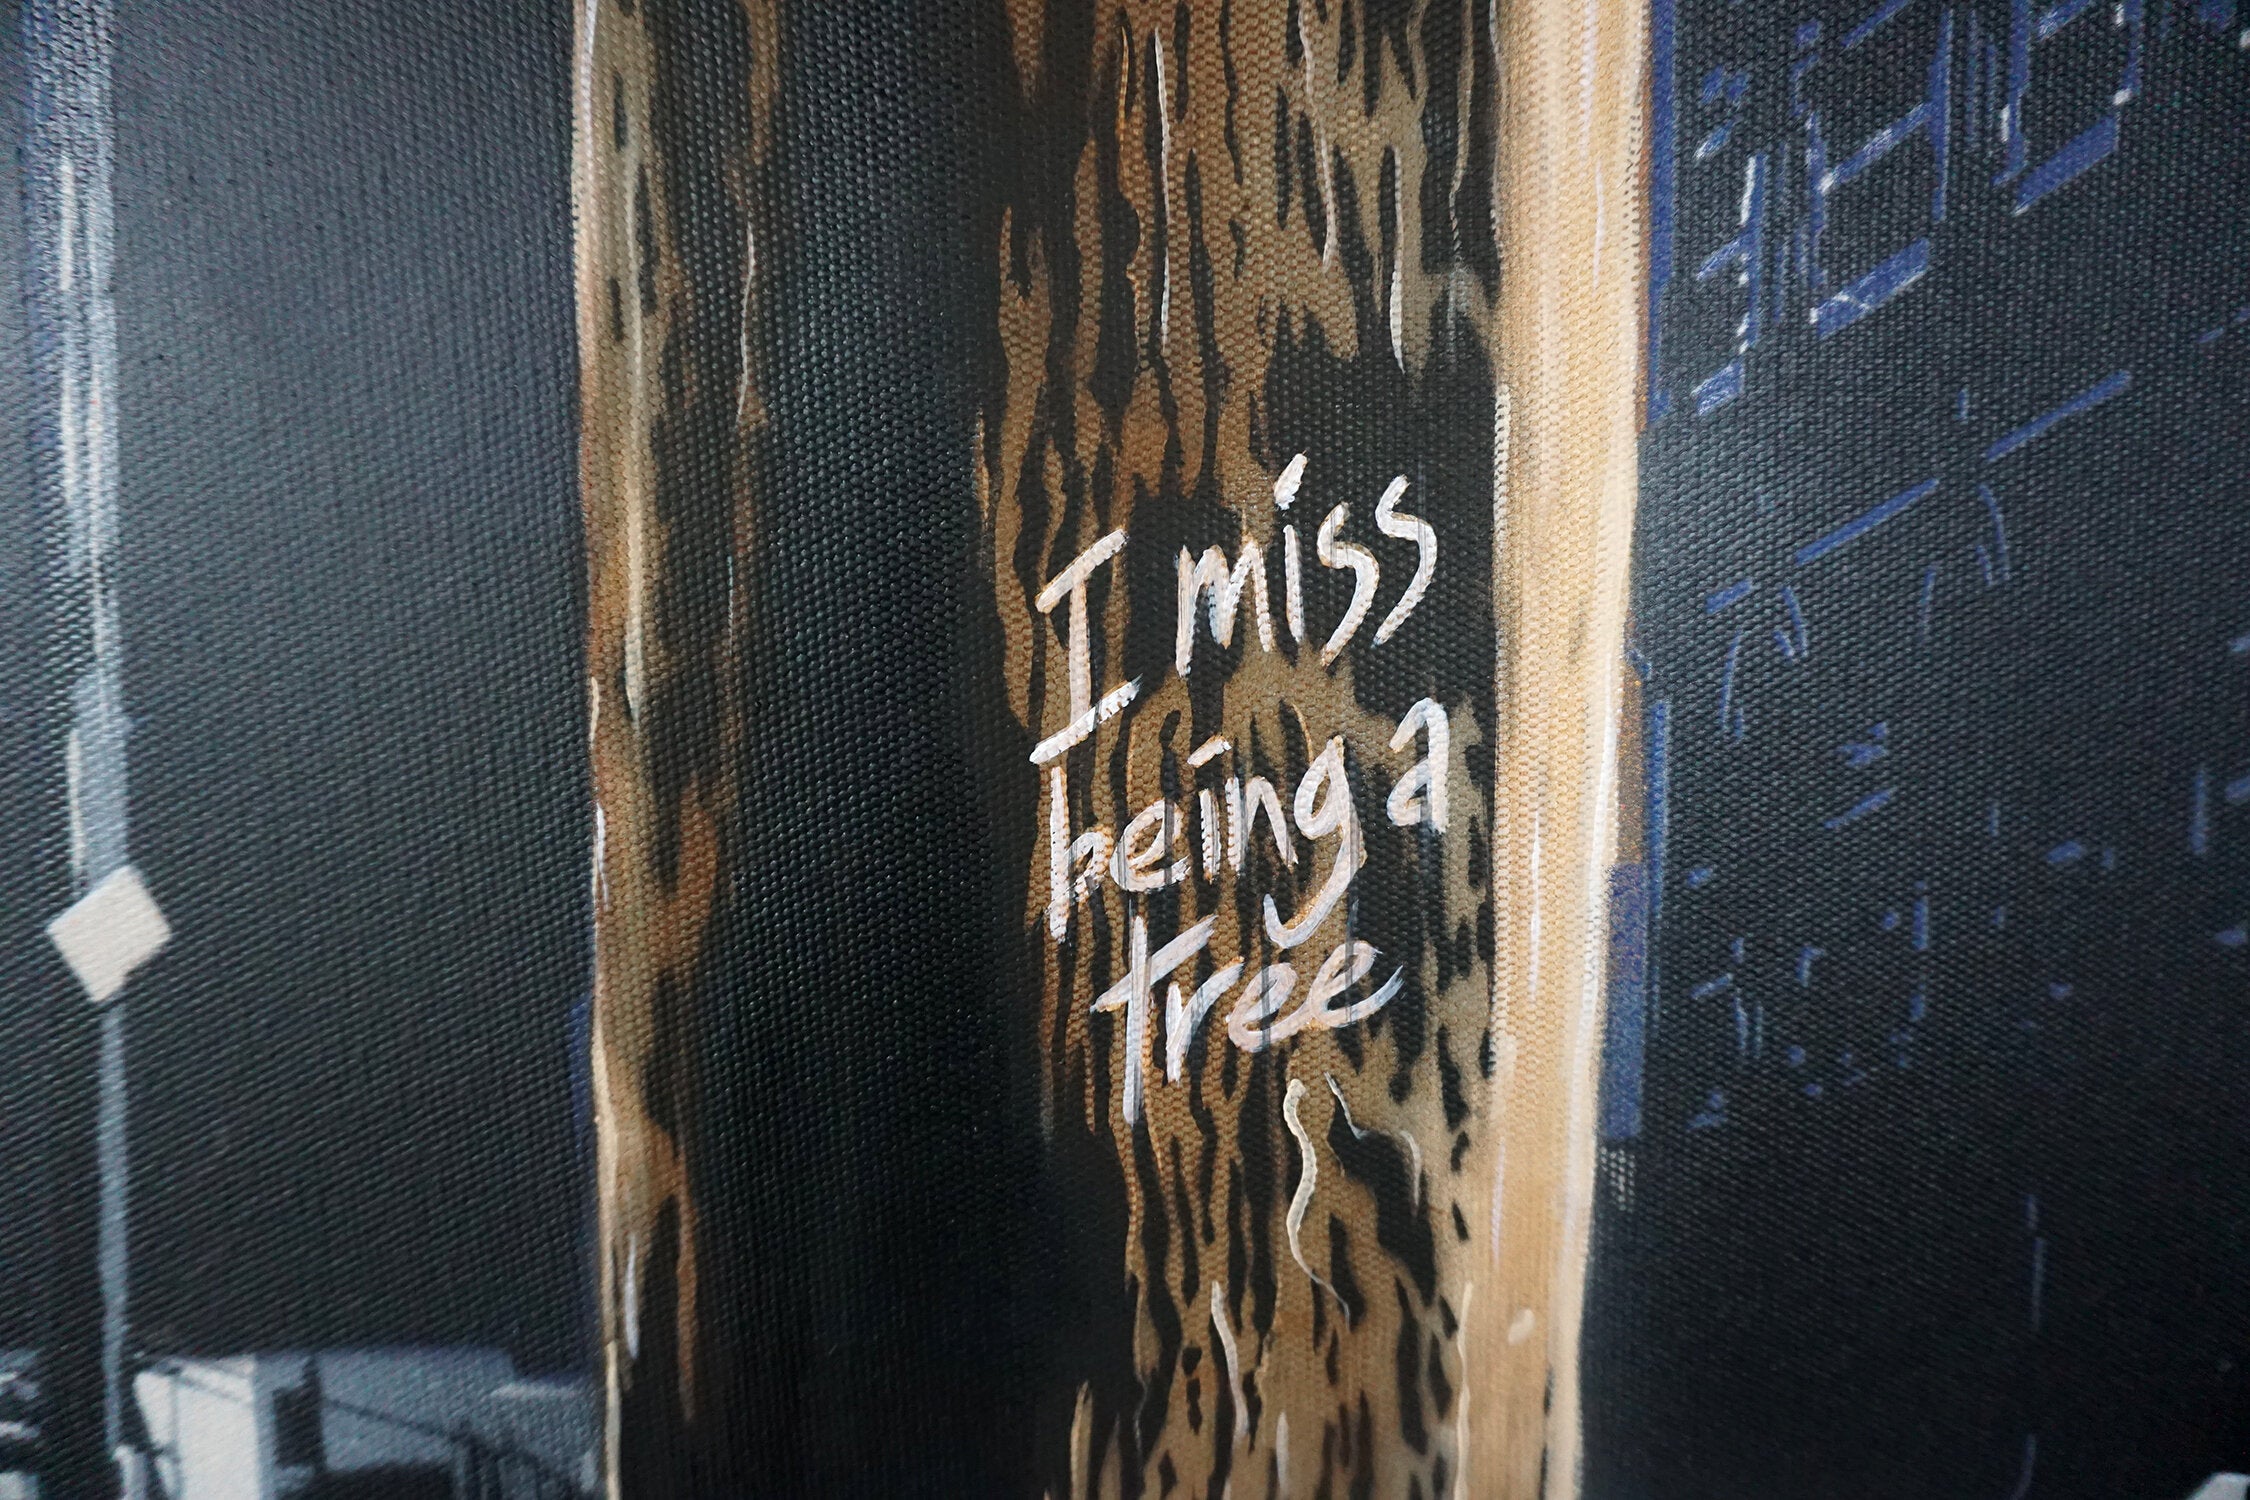 I miss
being a
tree